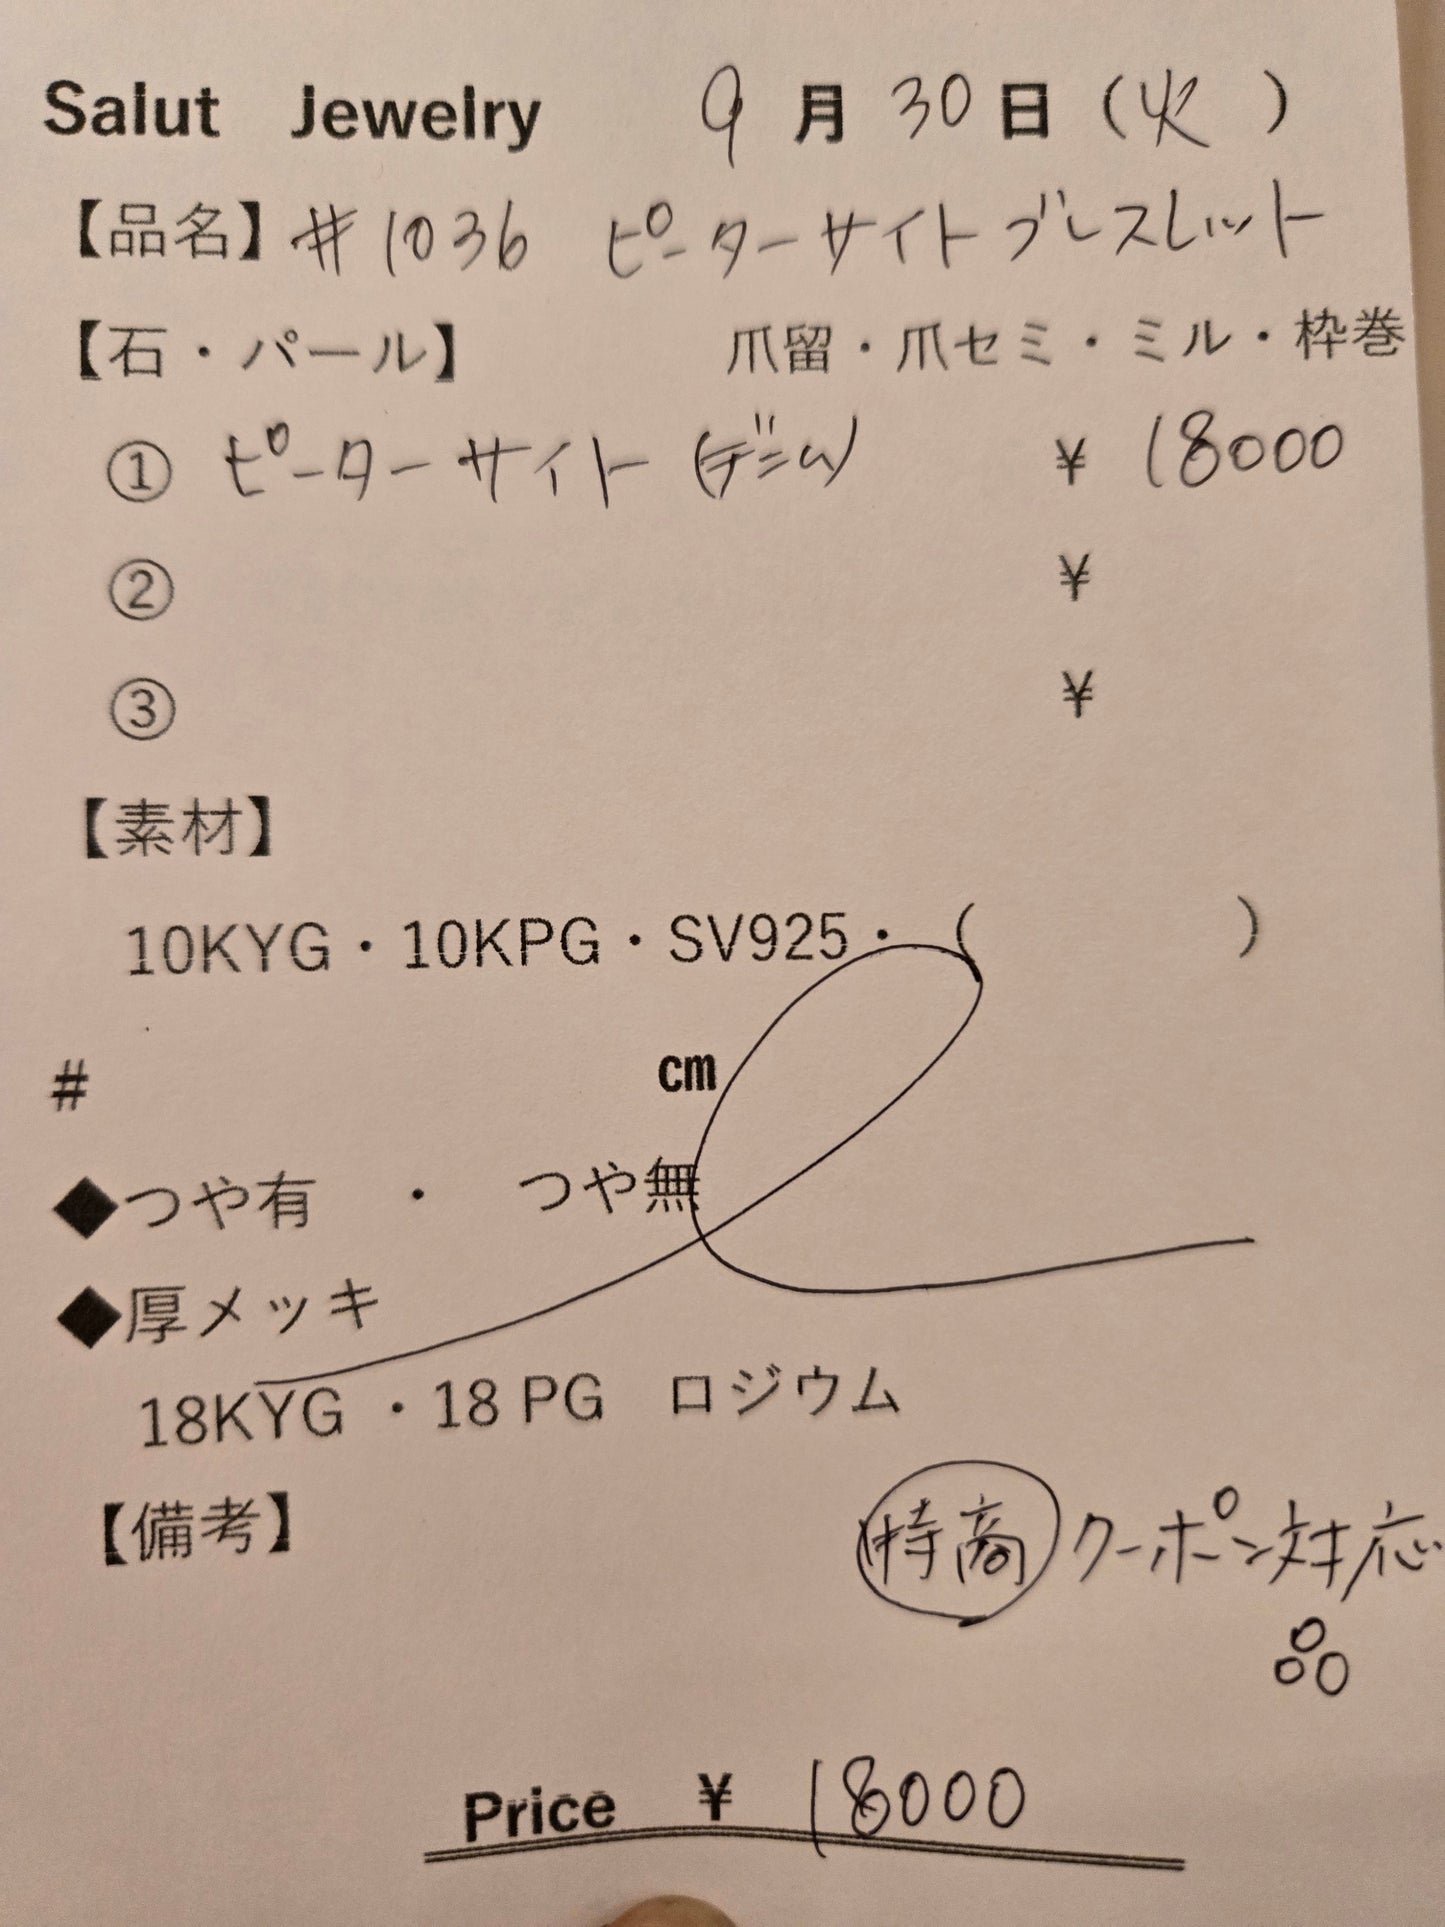 Salut Jewelry 9月30日(火)
【品名】#1036 ピーターサイトブレスレット
【石・パール】 爪留・爪セミ・ミル・枠巻
① ピーターサイト(デニム) ¥ 18000
② ¥
③ ¥
【素材】
10KYG・10KPG・SV925・( )
# cm
◆つや有 ・ つや無
◆厚メッキ
18KYG ・18 PG ロジウム
【備考】
特商 クーポン対応
Price ¥ 18000